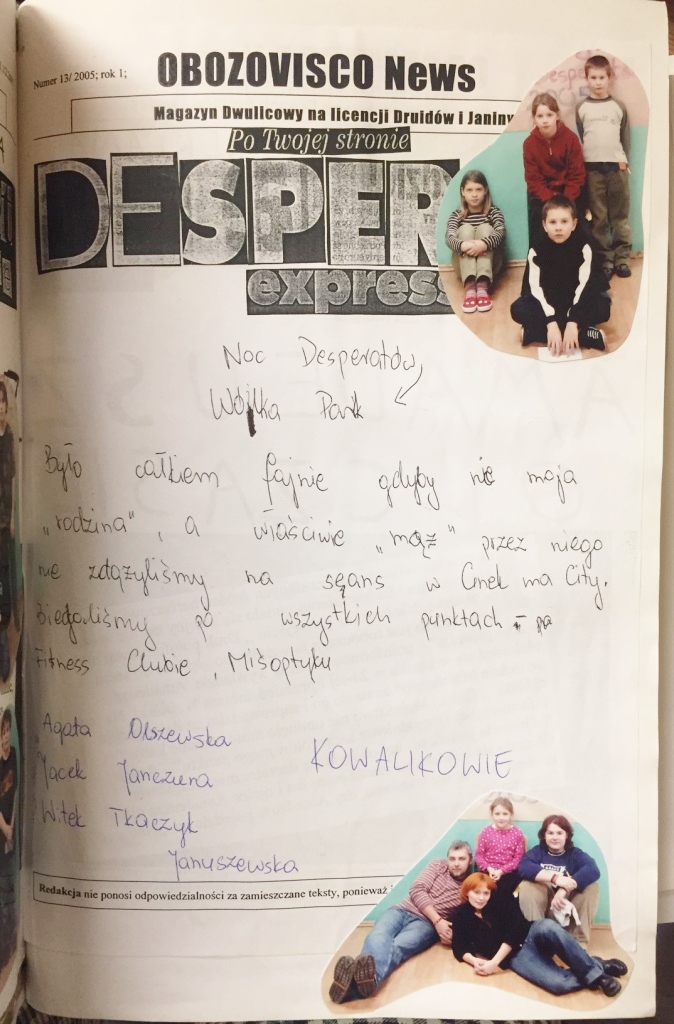 Numer 13/ 2005; rok 1;
OBOZOVISCO News
Magazyn Dwulicowy na licencji Druidów i Janiny
Po Twojej stronie
DESPER
express
Noc Desperatów
Wólka Park
Było całkiem fajnie gdyby nie moja
„rodzina", a właściwie „mąż" przez niego
nie zdążyliśmy na sęans w Cinek ma City.
Biegaliśmy po wszystkich punktach - po
Fitness Clubie, Miśoptyku
Agata Olszewska
KOWALIKOWIE
Jacek Janczura
Witek Tkaczyk
Januszewska
Redakcja nie ponosi odpowiedzialności za zamieszczane teksty, ponieważ